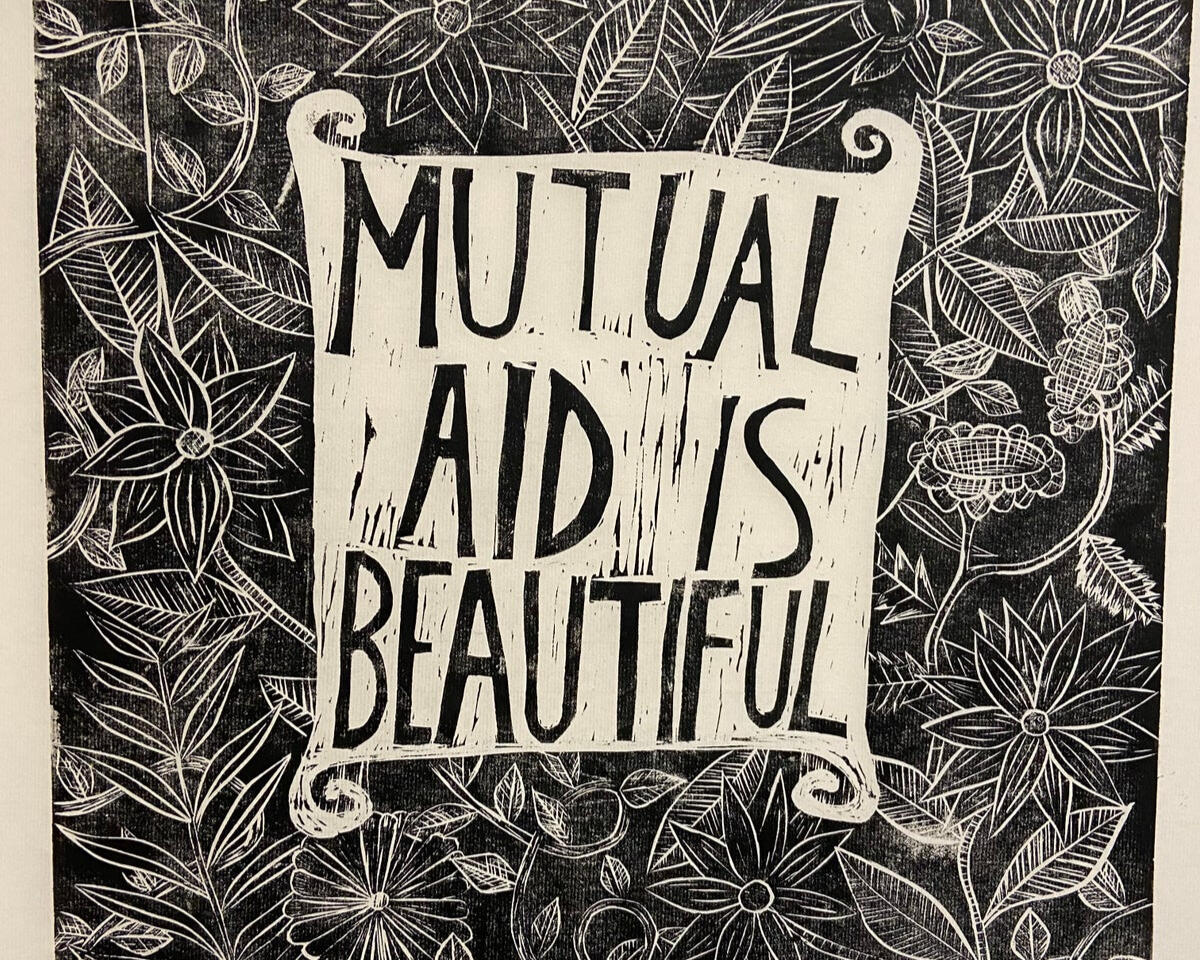 MUTUAL
AID IS
BEAUTIFUL